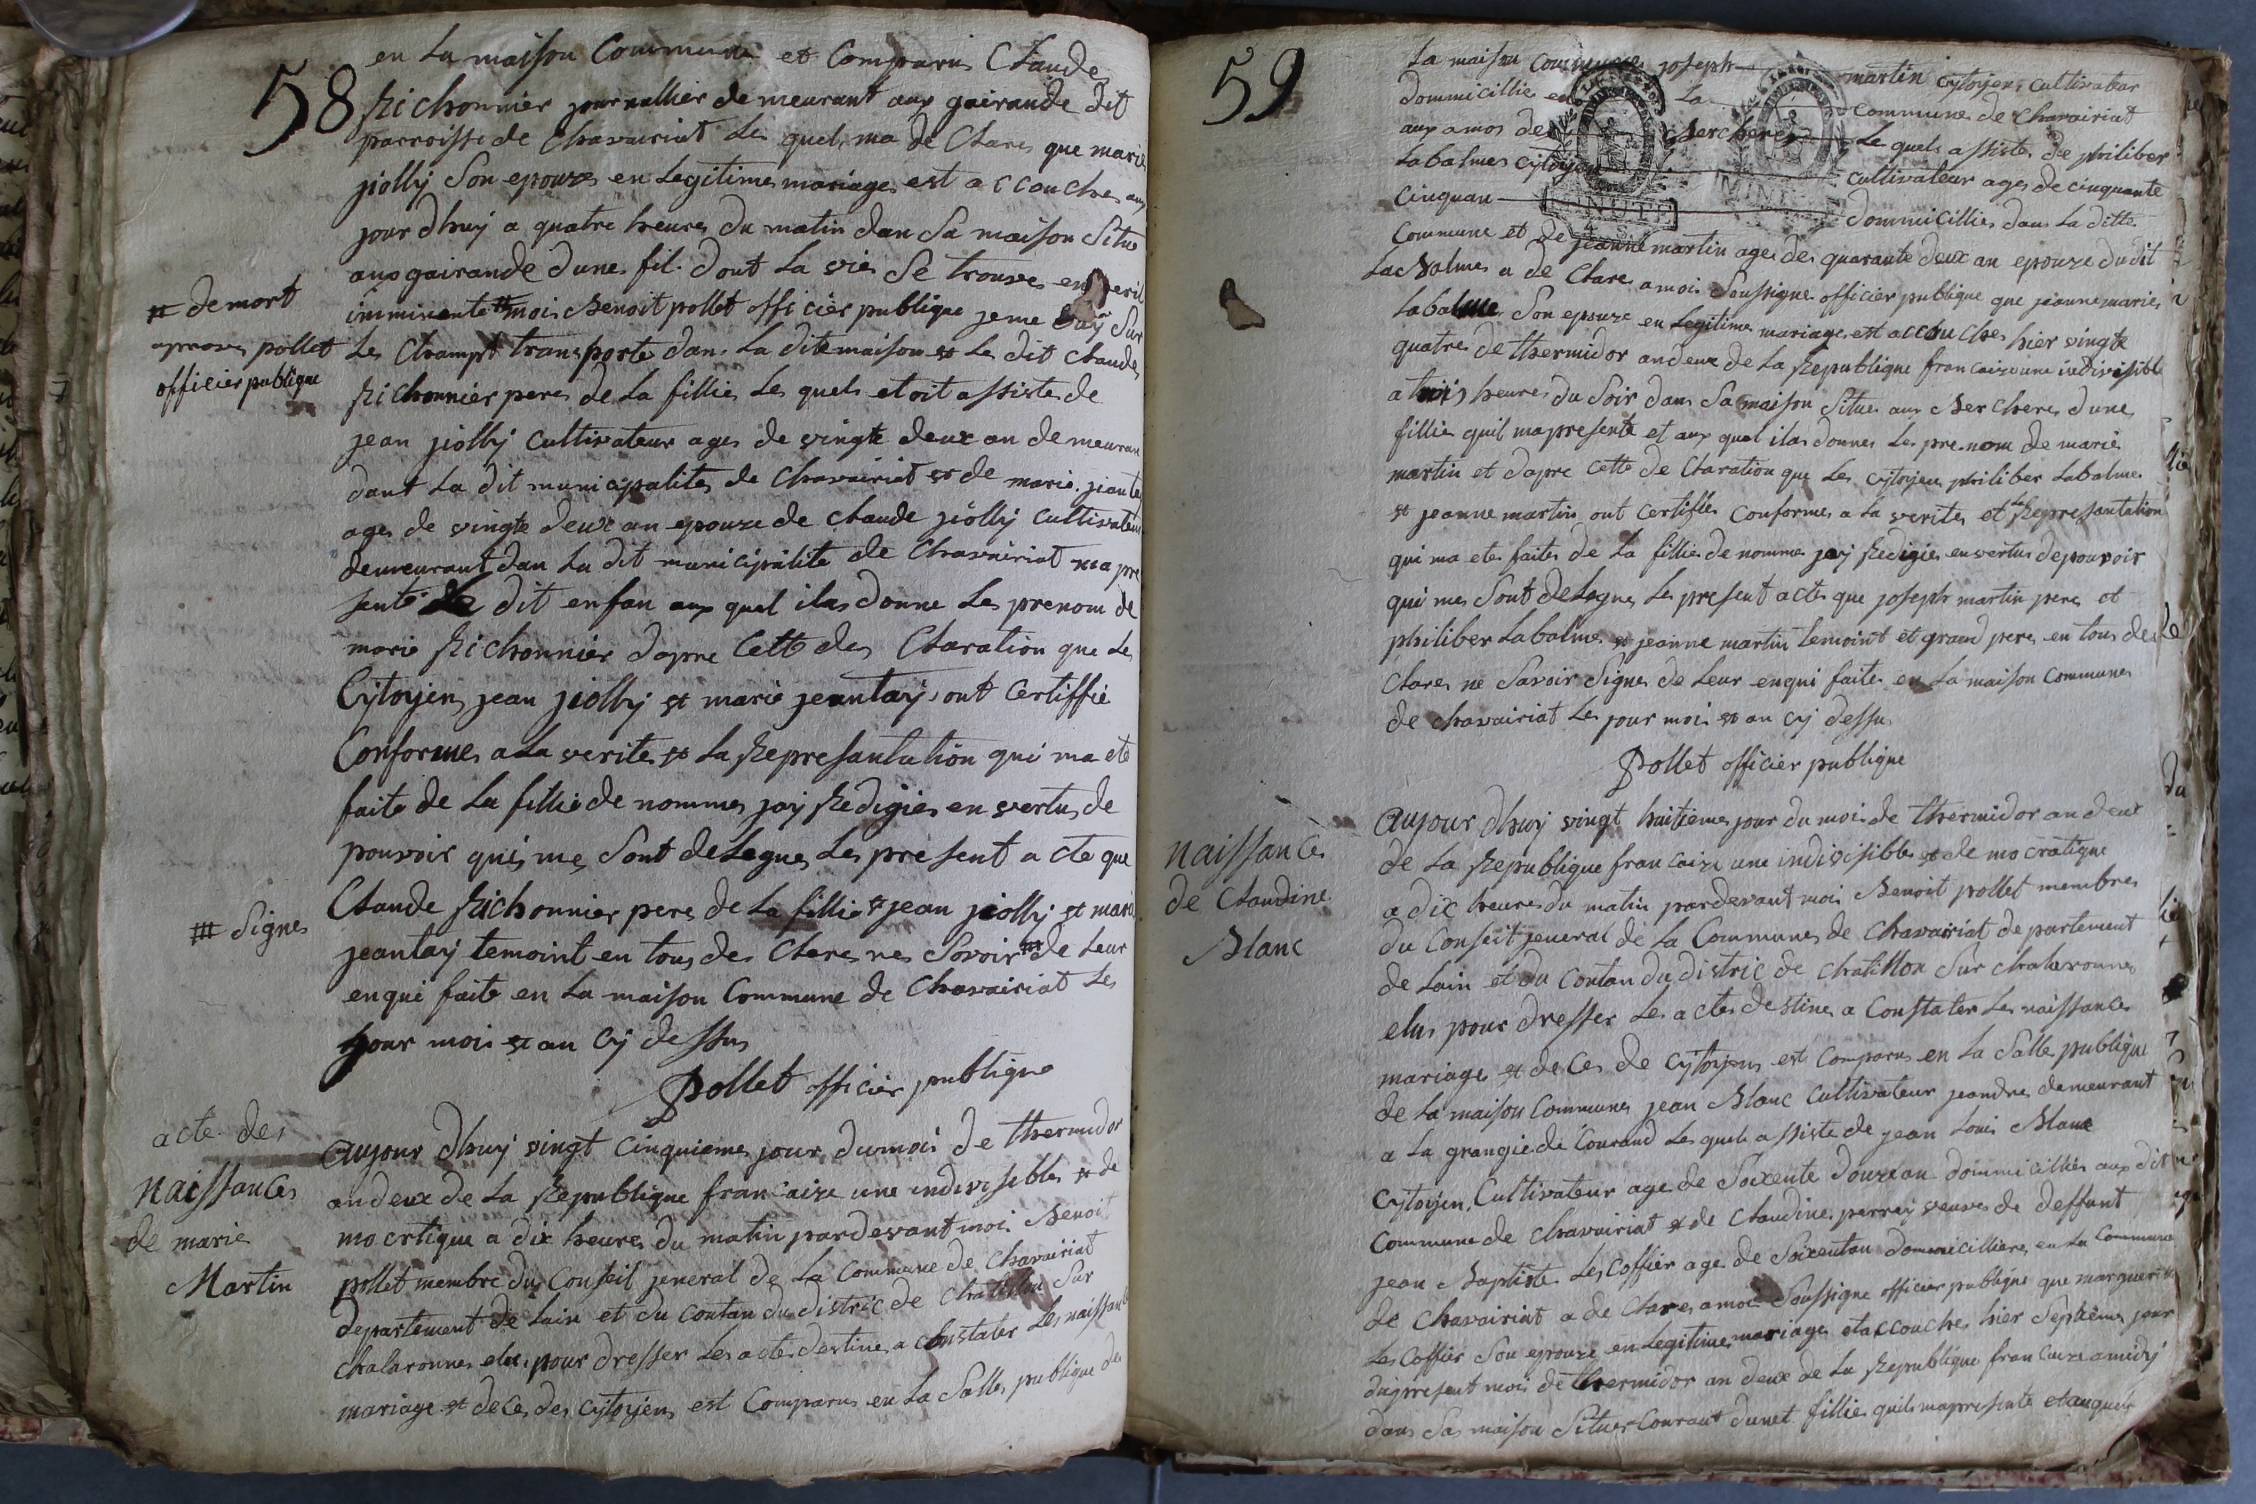 58
en La maison Commune et Comparu Claude
Richonnier journallier demeurant aux gairande dit
parroisse de Chavairiat Le quel ma de Clare que marie
jiolly Son epouze en Legitime mariage est accouche aux
jour dhuy a quatre heure du matin dan Sa maison Situe
aux gairande dune fil dont La vie Se trouve en peril
imminente # moi Benoit pollet officier publique jeme Sur
# de mort
aprouve pollet
officier publique
Le Champt transporte dan La dite maison et Le dit Claude
Richonnier pere de La fillie Le quel etoit assiste de
jean jiolly Cultivateur age de vingte deux an demeuran
dant La dit municipalite de Chavairiat et de marie jeante
age de vingte deux an epouze de Claude jiolly Cultivateur
demeurant dan La dit municipalite de Chavairiat ma pre
sente Le dit enfan aux quel ila donne Le prenom de
marie Richonnier dapre Cette de Claration que Le
Cytoyen jean jiolly et marie jeantay ont Certiffie
Conforme a La verite et La Represantation qui ma ete
faite de La fillie de nomme jay Redigie en vertu de
pouvoir qui me Sont delegue Le present acte que
Claude Richonnier pere de La fillie et jean jiolly et marie
jeantay temoint en tous de Clare ne Savoir # de Leur
# Signe
enqui faite en La maison Commune de Chavairiat Le
jour moi et an Cy dessu
Pollet officier publique
acte de
Naissance
de marie
Martin
Aujour dhuy vingt Cinquieme jour du moi de thermidor
an deux de La Republique francaize une indivisible et de
mocrtique a dix heure du matin pardevant moi Benoit
pollet membre du Conseil jeneral de La Commune de Chavairiat
departement de Lain et du Contan du district de Chatillon Sur
Chalaronne elu pour dresser Le acte destine a Constater Le naissance
mariage et dece de Cytoyen est Comparu en La Salle publique de
59
La maison Commune joseph martin Cytoyen Cultivateur
dommicillie en La Commune de Chavairiat
aux amos de Bercheres Le quel assiste de philiber
Labalme Cytoyen cultivateur age de cinquante
cinquan dommicillie dans La ditte
Commune et de jeanne martin age de quarante deux an epouze du dit
Labalme a de Clare a moi Soussigne officier publique que jeanne marie
Labalme Son epouze en Legitime mariage est accouche hier vingte
quatre de thermidor an deux de La Republique francaize une indivisible
a trois heure du Soir dans Sa maison Situe aux Berchere dune
fillie quil mapresente et aux quel ila donne Le prenom de marie
martin et dapre Cette de Claration que Le Cytoyen philiber Labalme
et jeanne martin ont Certiffie Conforme a La verite et La Represantation
qui ma ete faite de La fillie de nomme jay Redigie en vertu de pouvoir
qui me Sont delegue Le present acte que joseph martin pere et
philiber Labalme et jeanne martin temoint et grand pere en tous de
Clare ne Savoir Signe de Leur enqui faite en La maison Commune
de Chavairiat Le jour moi et an Cy dessu
Pollet officier publique
Naissance
de Claudine
Blanc
Aujour dhuy vingt huitieme jour du moi de thermidor an deux
de La Republique francaize une indivisible et de mocratique
a dix heure du matin pardevant moi Benoit pollet membre
du Conseit jeneral de La Commune de Chavairiat departement
de Lain et du Contan du district de Chatillon Sur Chalaronne
elu pour dresser Le acte destine a Constater Le naissance
mariage et dece de Cytoyen est Comparu en La Salle publique
de La maison Commune jean Blanc Cultivateur jeandre demeurant
a La grangie de Courand Le quel assiste de jean Louis Blanc
Cytoyen Cultivateur age de Soixente douze an dommicillie aux dit
Commune de Chavairiat et de Claudine perrey veuve de deffunt
jean Baptiste Lescoffier age de Soixentan dommicilliere en La Commune
de Chavairiat a de Clare a moi Soussigne officier publique que marguerite
Lescoffier Son epouze en Legitime mariage et accouche hier Septieme jour
du present mois de thermidor an deux de La Republique francaize a midy
dans Sa maison Situer Courant dunet fillie quil mapresente et auquel